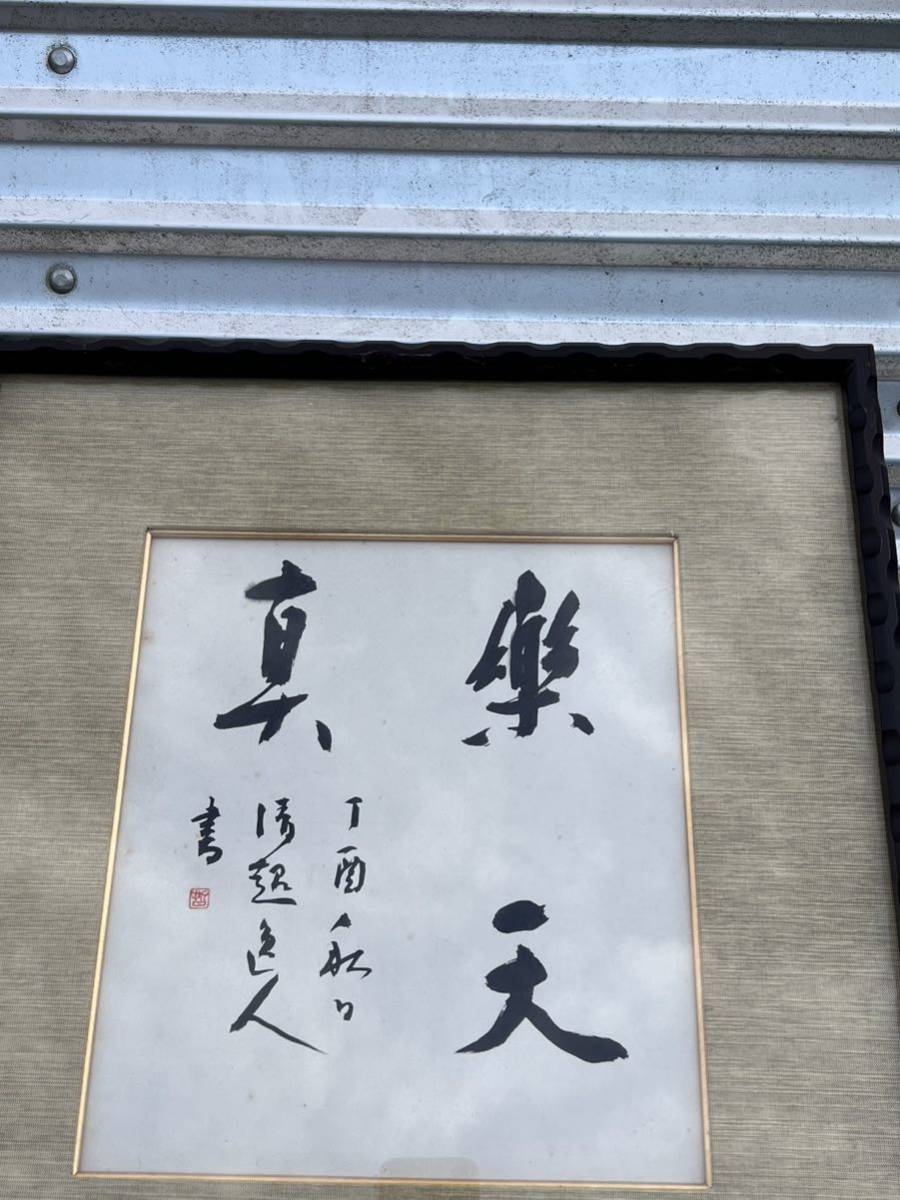 樂天
真
丁酉秋日
清超逸人
書